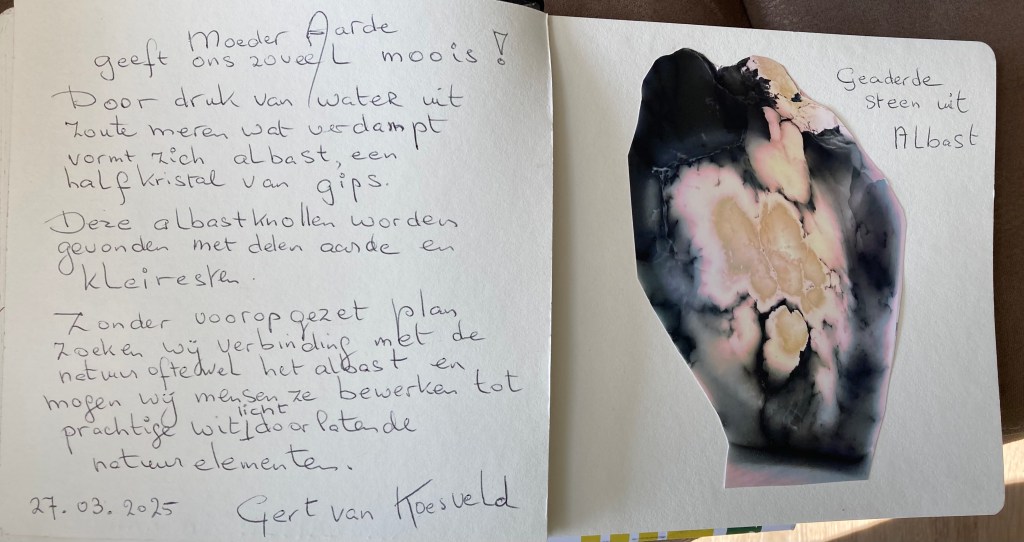 Moeder Aarde
geeft ons zoveel moois!
Door druk van water uit
zoute meren wat verdampt
vormt zich albast, een
halfkristal van gips.
Deze albastknollen worden
gevonden met delen aarde en
kleiresten.
Zonder voorop gezet plan
zoeken wij verbinding met de
natuur oftewel het albast en
mogen wij mensen ze bewerken tot
prachtige wit licht doorlatende
natuur elementen.
27.03.2025 Gert van Koesveld
Geaderde
steen uit
Albast